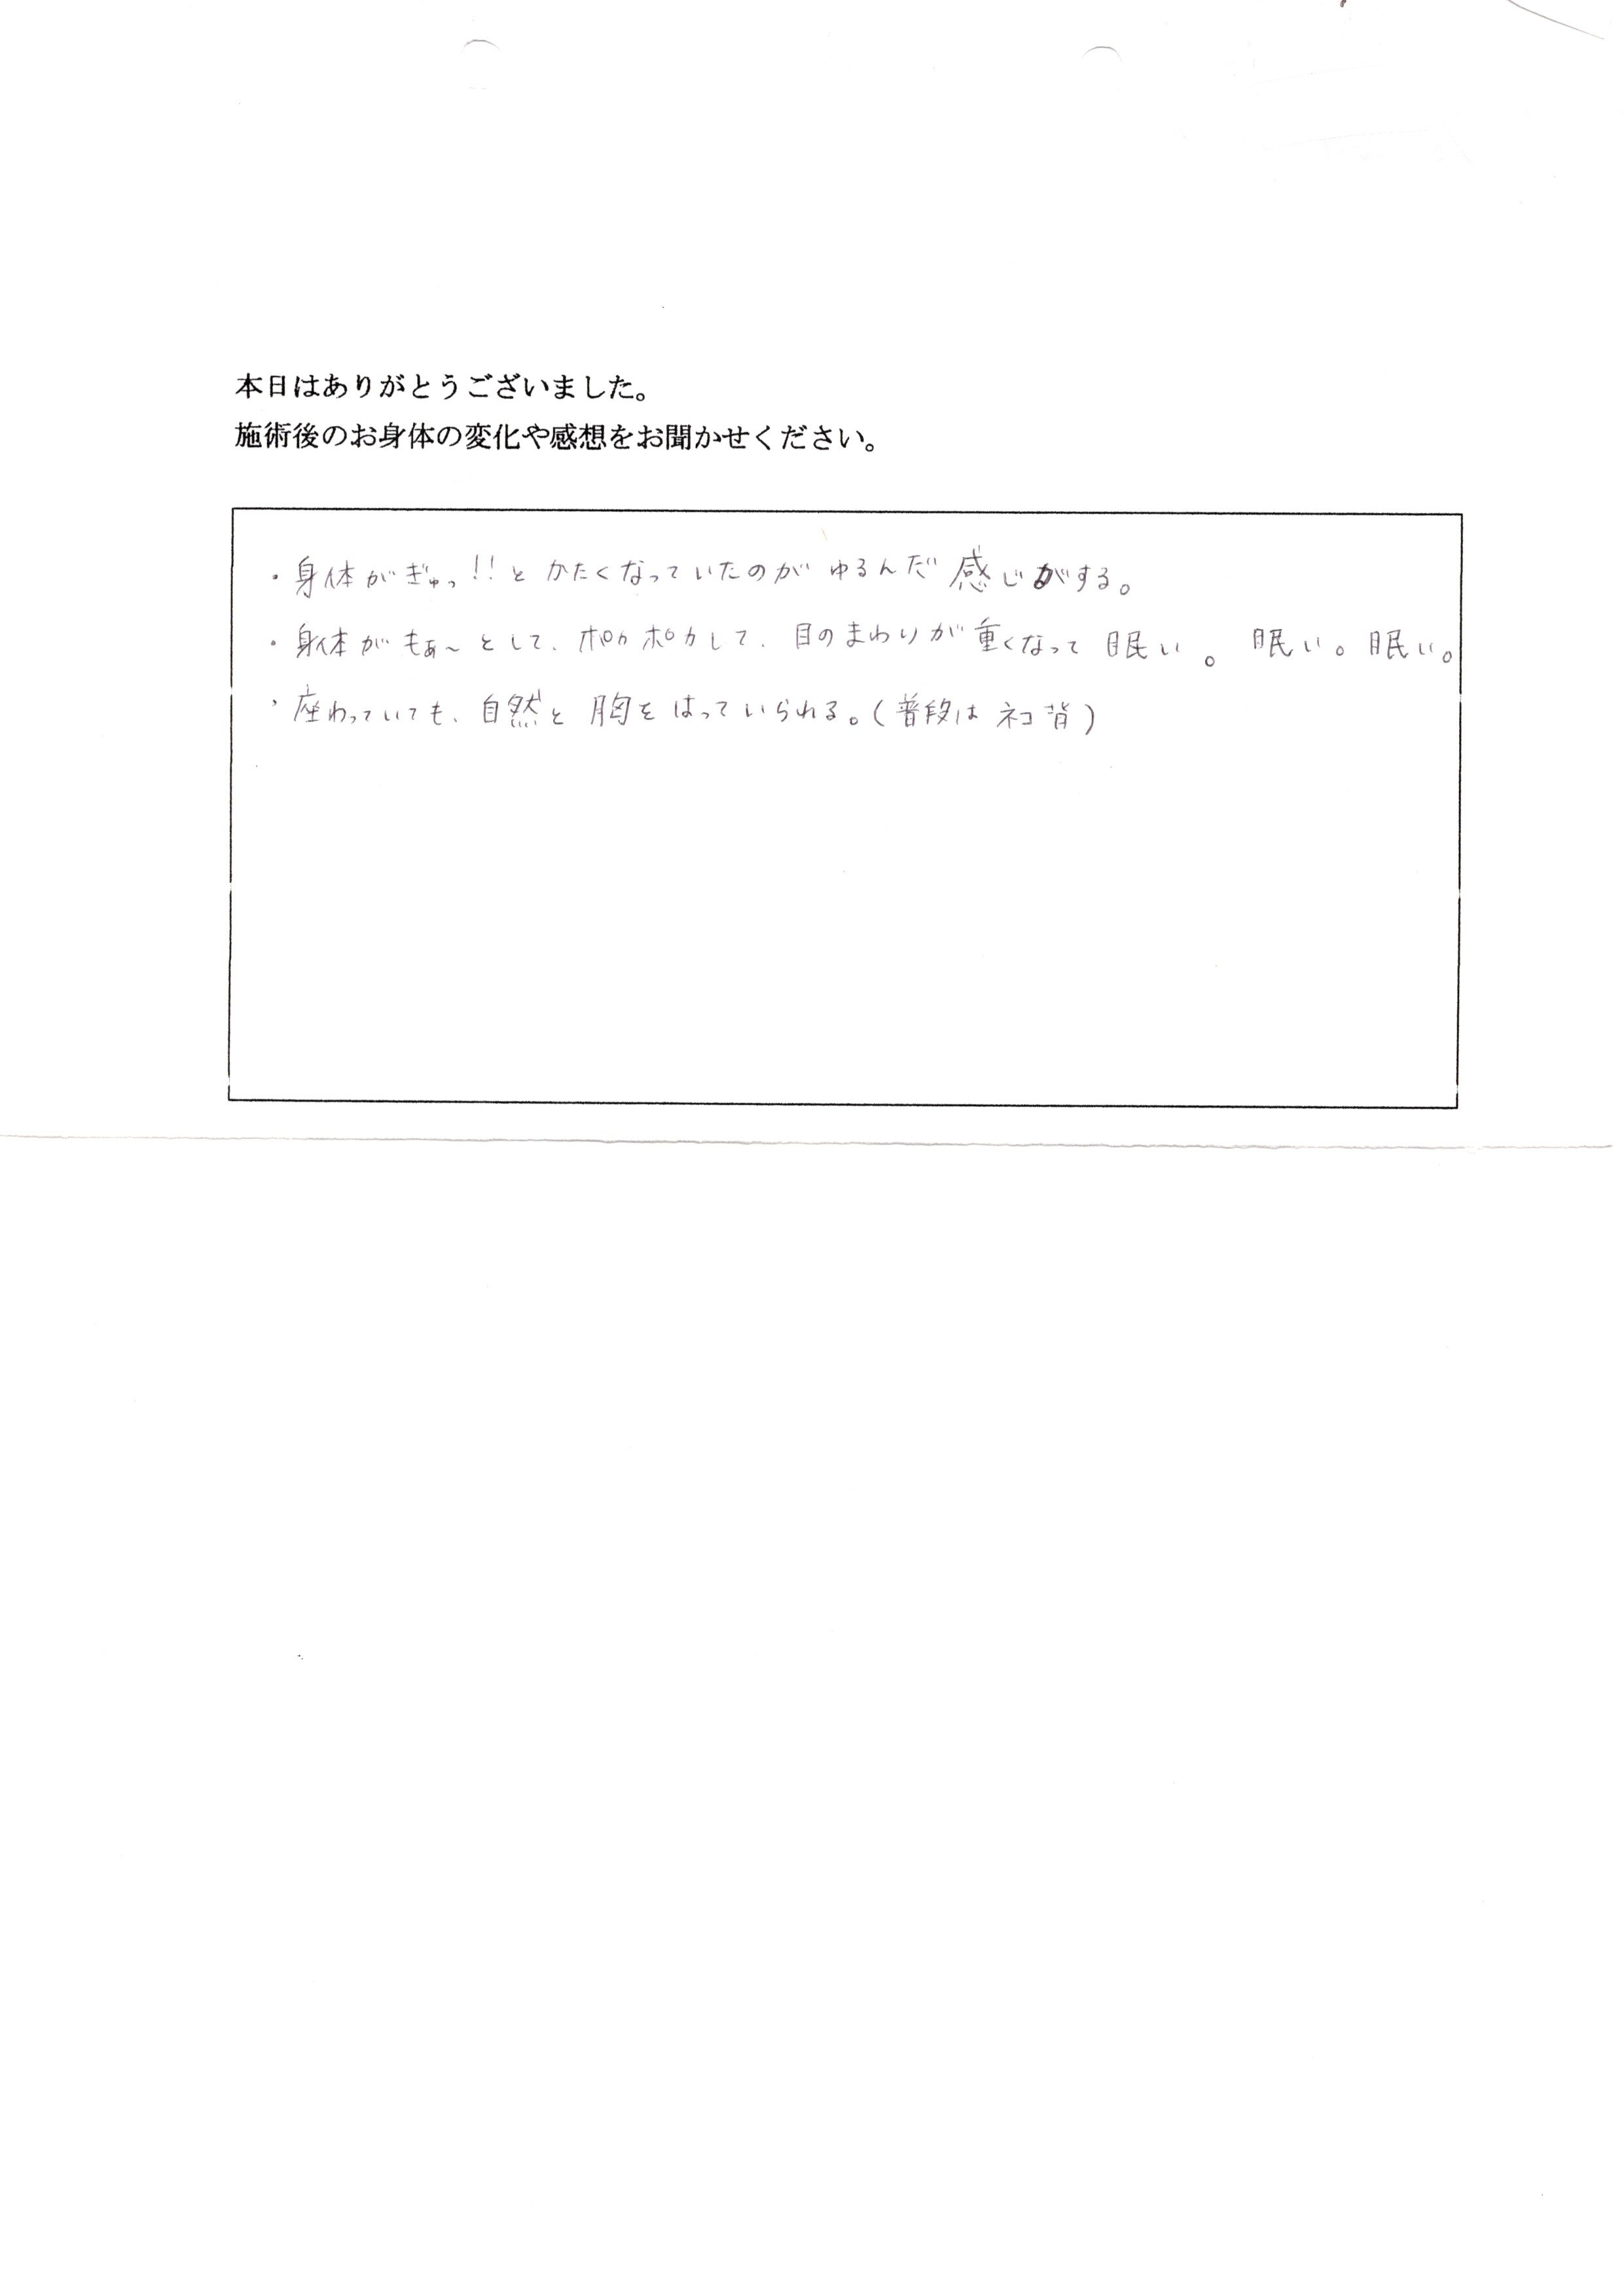 本日はありがとうございました。
施術後のお身体の変化や感想をお聞かせください。
・身体がぎゅっ!!とかたくなっていたのがゆるんだ感じがする。
・身体がもぁ〜として、ポカポカして、目のまわりが重くなって眠い。眠い。眠い。
・座わっていても、自然と胸をはっていられる。(普段はネコ背)